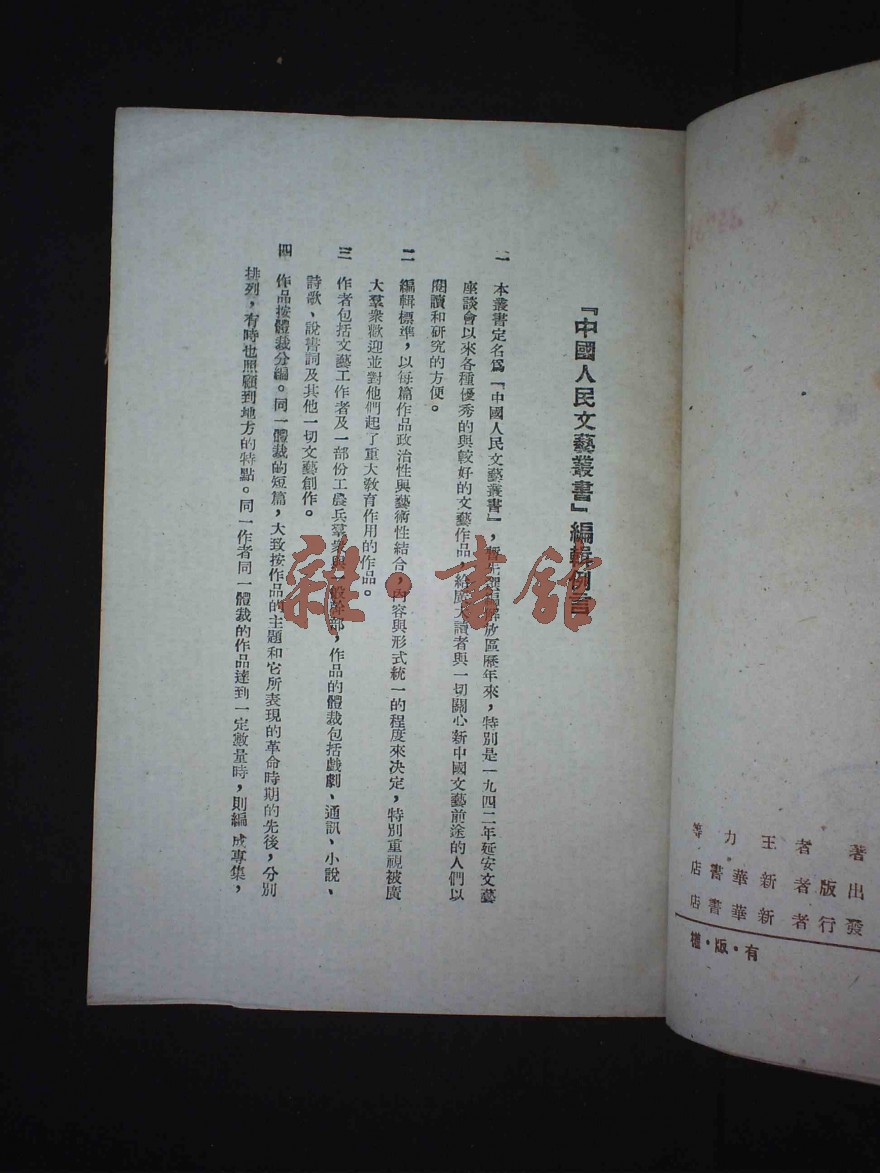 『中國人民文藝叢書』編輯例言
一 本叢書定名爲『中國人民文藝叢書』，暫先選編解放區歷年來，特別是一九四二年延安文藝
座談會以來各種優秀的與較好的文藝作品，給廣大讀者與一切關心新中國文藝前途的人們以
閱讀和研究的方便。
二 編輯標準，以每篇作品政治性與藝術性結合，內容與形式統一的程度來决定，特別重視被廣
大羣衆歡迎並對他們起了重大敎育作用的作品。
三 作者包括文藝工作者及一部份工農兵羣衆與一般幹部，作品的體裁包括戲劇、通訊、小說、
詩歌、說書詞及其他一切文藝創作。
四 作品按體裁分編。同一體裁的短篇，大致按作品的主題和它所表現的革命時期的先後，分別
排列，有時也照顧到地方的特點。同一作者同一體裁的作品達到一定數量時，則編成專集，
雜·書舘
等力王者著
店書華新者版出
店書華新者行發
權·版·有